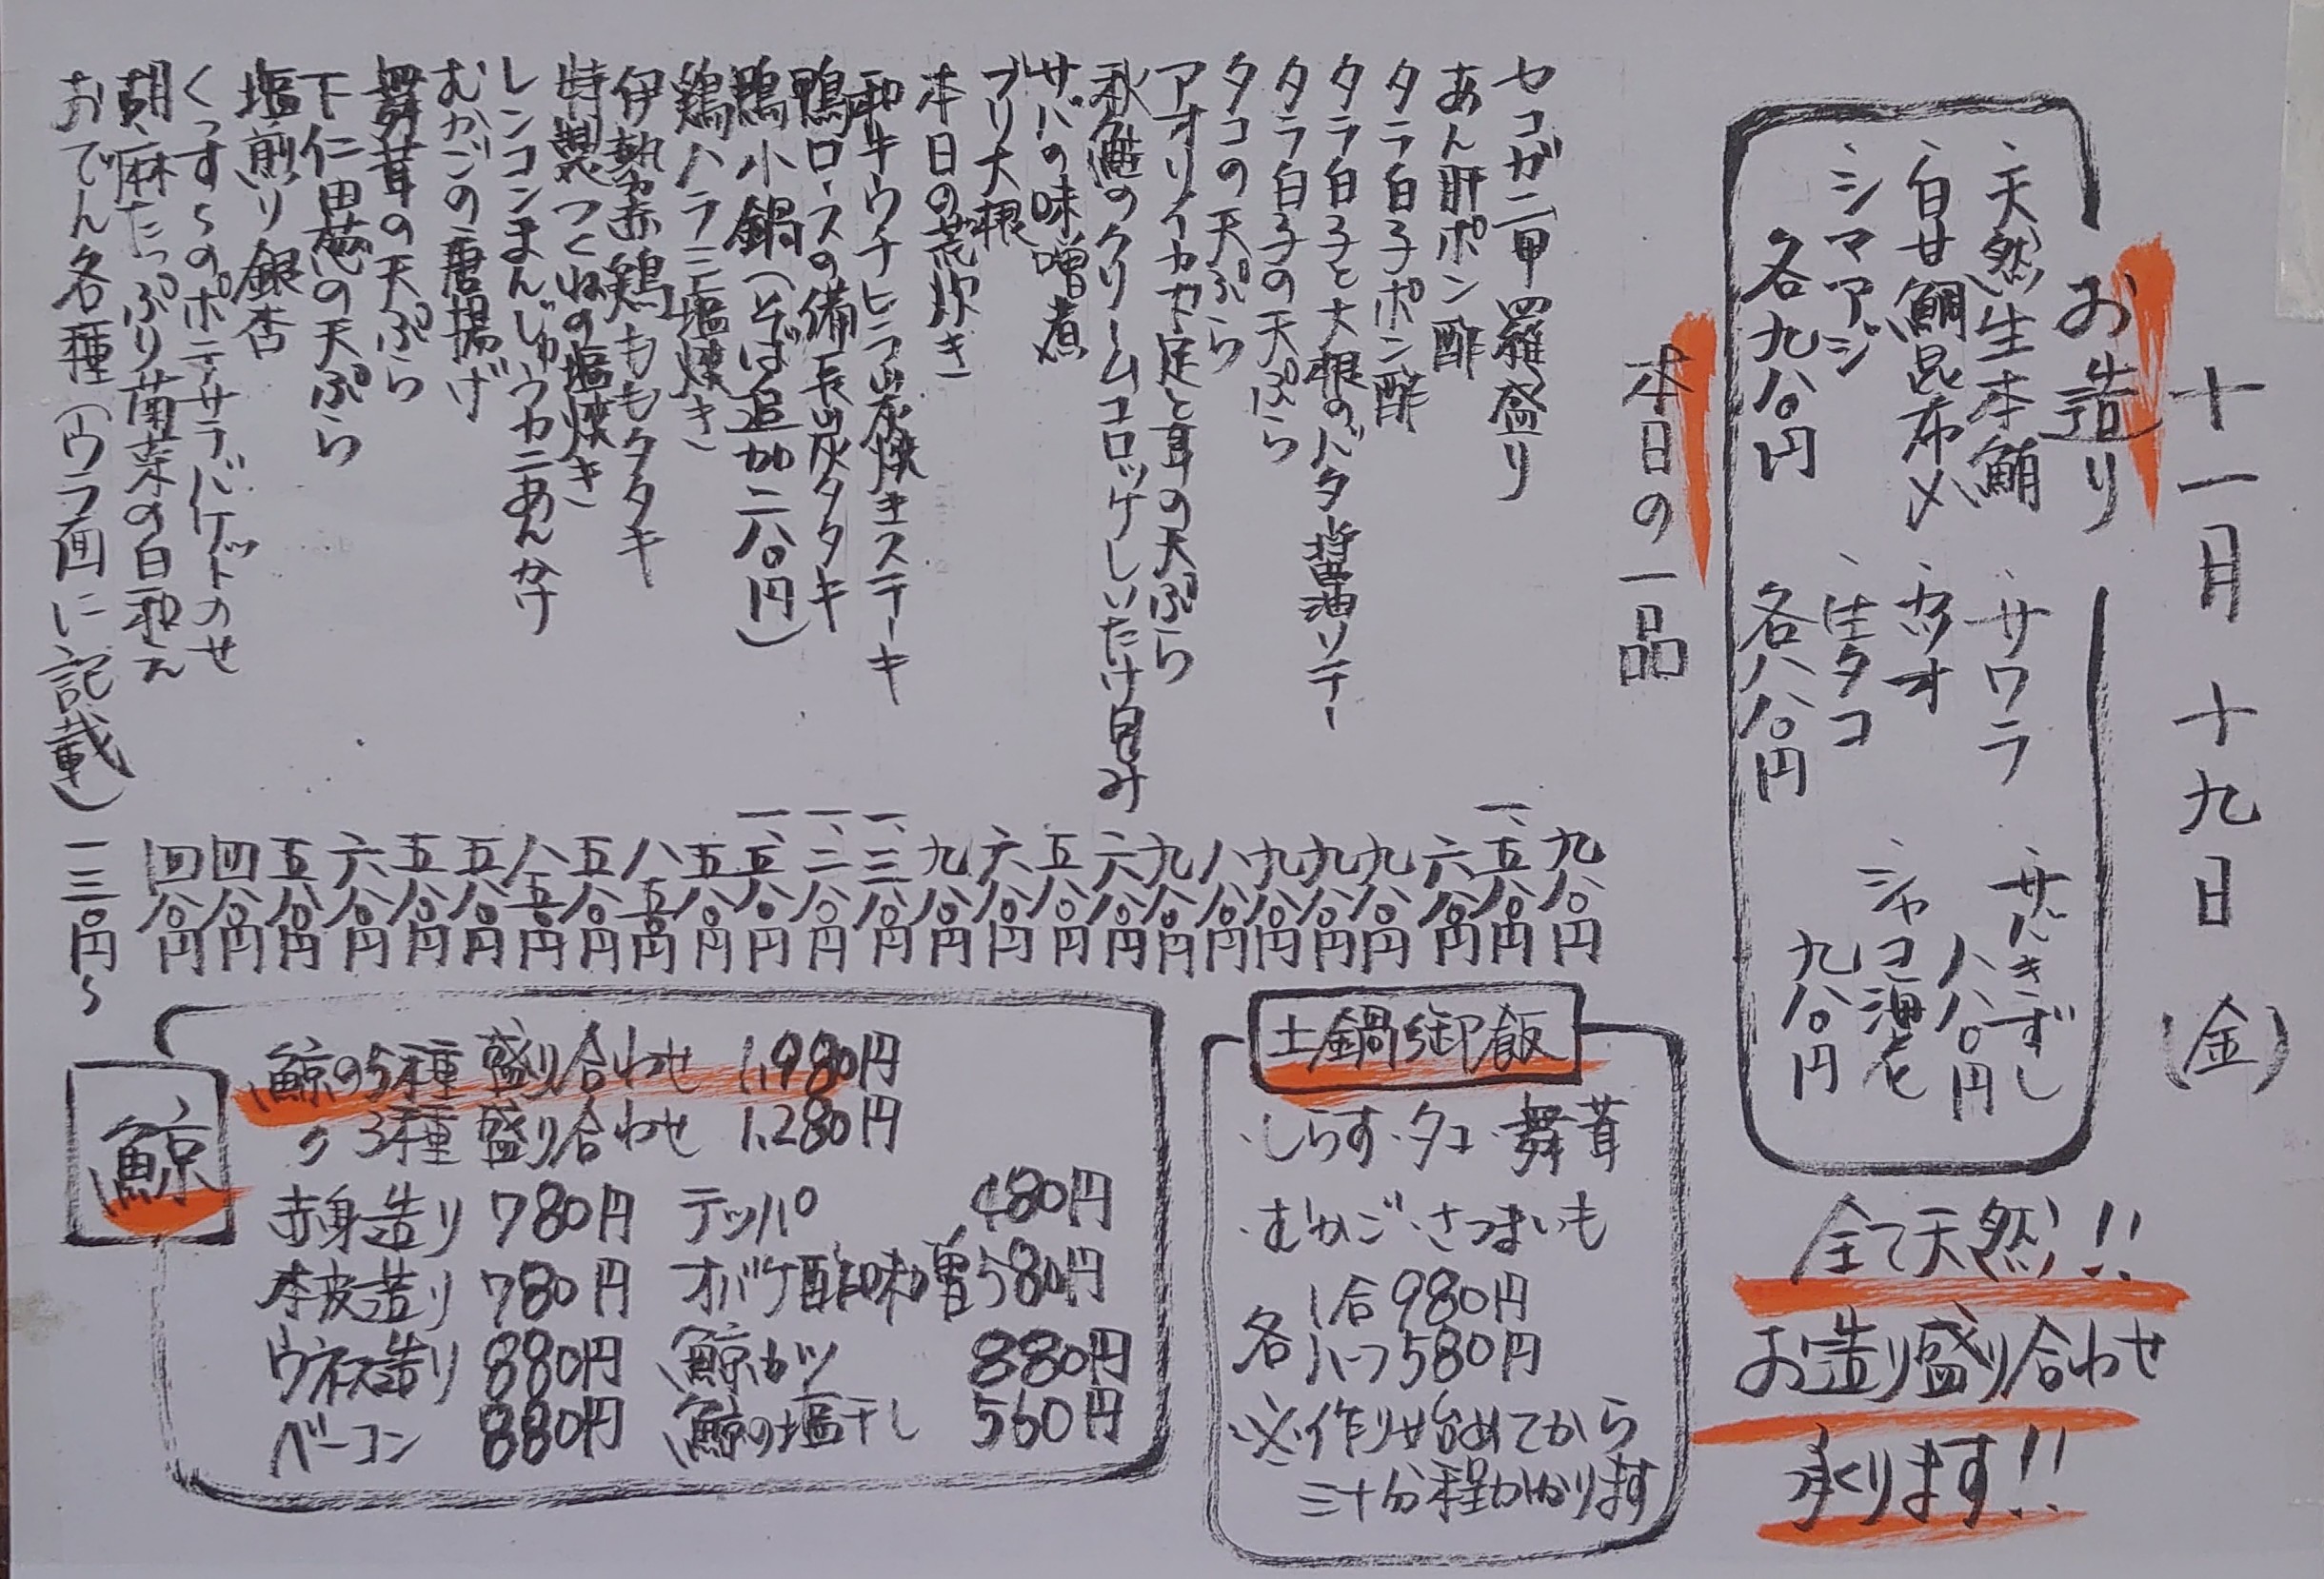 十一月十九日（金）
お造り
・天然生本鮪
・白甘鯛昆布〆
・シマアジ
各九八〇円
・サワラ
・カツオ
・生タコ
各八八〇円
・サバきずし
八八〇円
・シャコ酒煮
九八〇円
全て天然!!
お造り盛り合わせ
承ります!!
本日の一品
九八〇円
セコガニ甲羅盛り 一、五八〇円
あん肝ポン酢 六八〇円
タラ白子ポン酢 九八〇円
タラ白子と大根のバタ醤油ソテー 九八〇円
タラ白子の天ぷら 九八〇円
タコの天ぷら 八八〇円
アオリイカ下足と耳の天ぷら 九八〇円
秋鮭のクリームコロッケしいたけ包み 六八〇円
サバの味噌煮 五八〇円
ブリ大根 六八〇円
本日の荒炊き 九八〇円
和牛ウチヒラ炭焼きステーキ 一、三八〇円
鴨ロースの備長炭タタキ 一、二八〇円
鴨小鍋（そば追加二八〇円） 一、五八〇円
鶏ハラミ塩焼き 五八〇円
伊勢赤鶏ももタタキ 八五〇円
特製つくねの塩焼き 五八〇円
レンコンまんじゅうカニあんかけ 八五〇円
むかごの唐揚げ 五八〇円
舞茸の天ぷら 五八〇円
下仁田葱の天ぷら 六八〇円
塩煎り銀杏 五八〇円
くっすらのポテサラバゲットのせ 四八〇円
胡麻たっぷり菊菜の白和え 四八〇円
おでん各種（ウラ面に記載） 一三〇円〜
土鍋御飯
・しらす・タコ・舞茸
・むかご・さつまいも
各 1合 980円
ハーフ 580円
※作り始めてから
三十分程かかります
鯨
鯨の5種盛り合わせ 1,980円
〃 3種盛り合わせ 1,280円
赤身造り 780円 テッパ 480円
本皮造り 780円 オバケ酢味噌 580円
ウネス造り 880円 鯨カツ 880円
ベーコン 880円 鯨の塩干し 560円